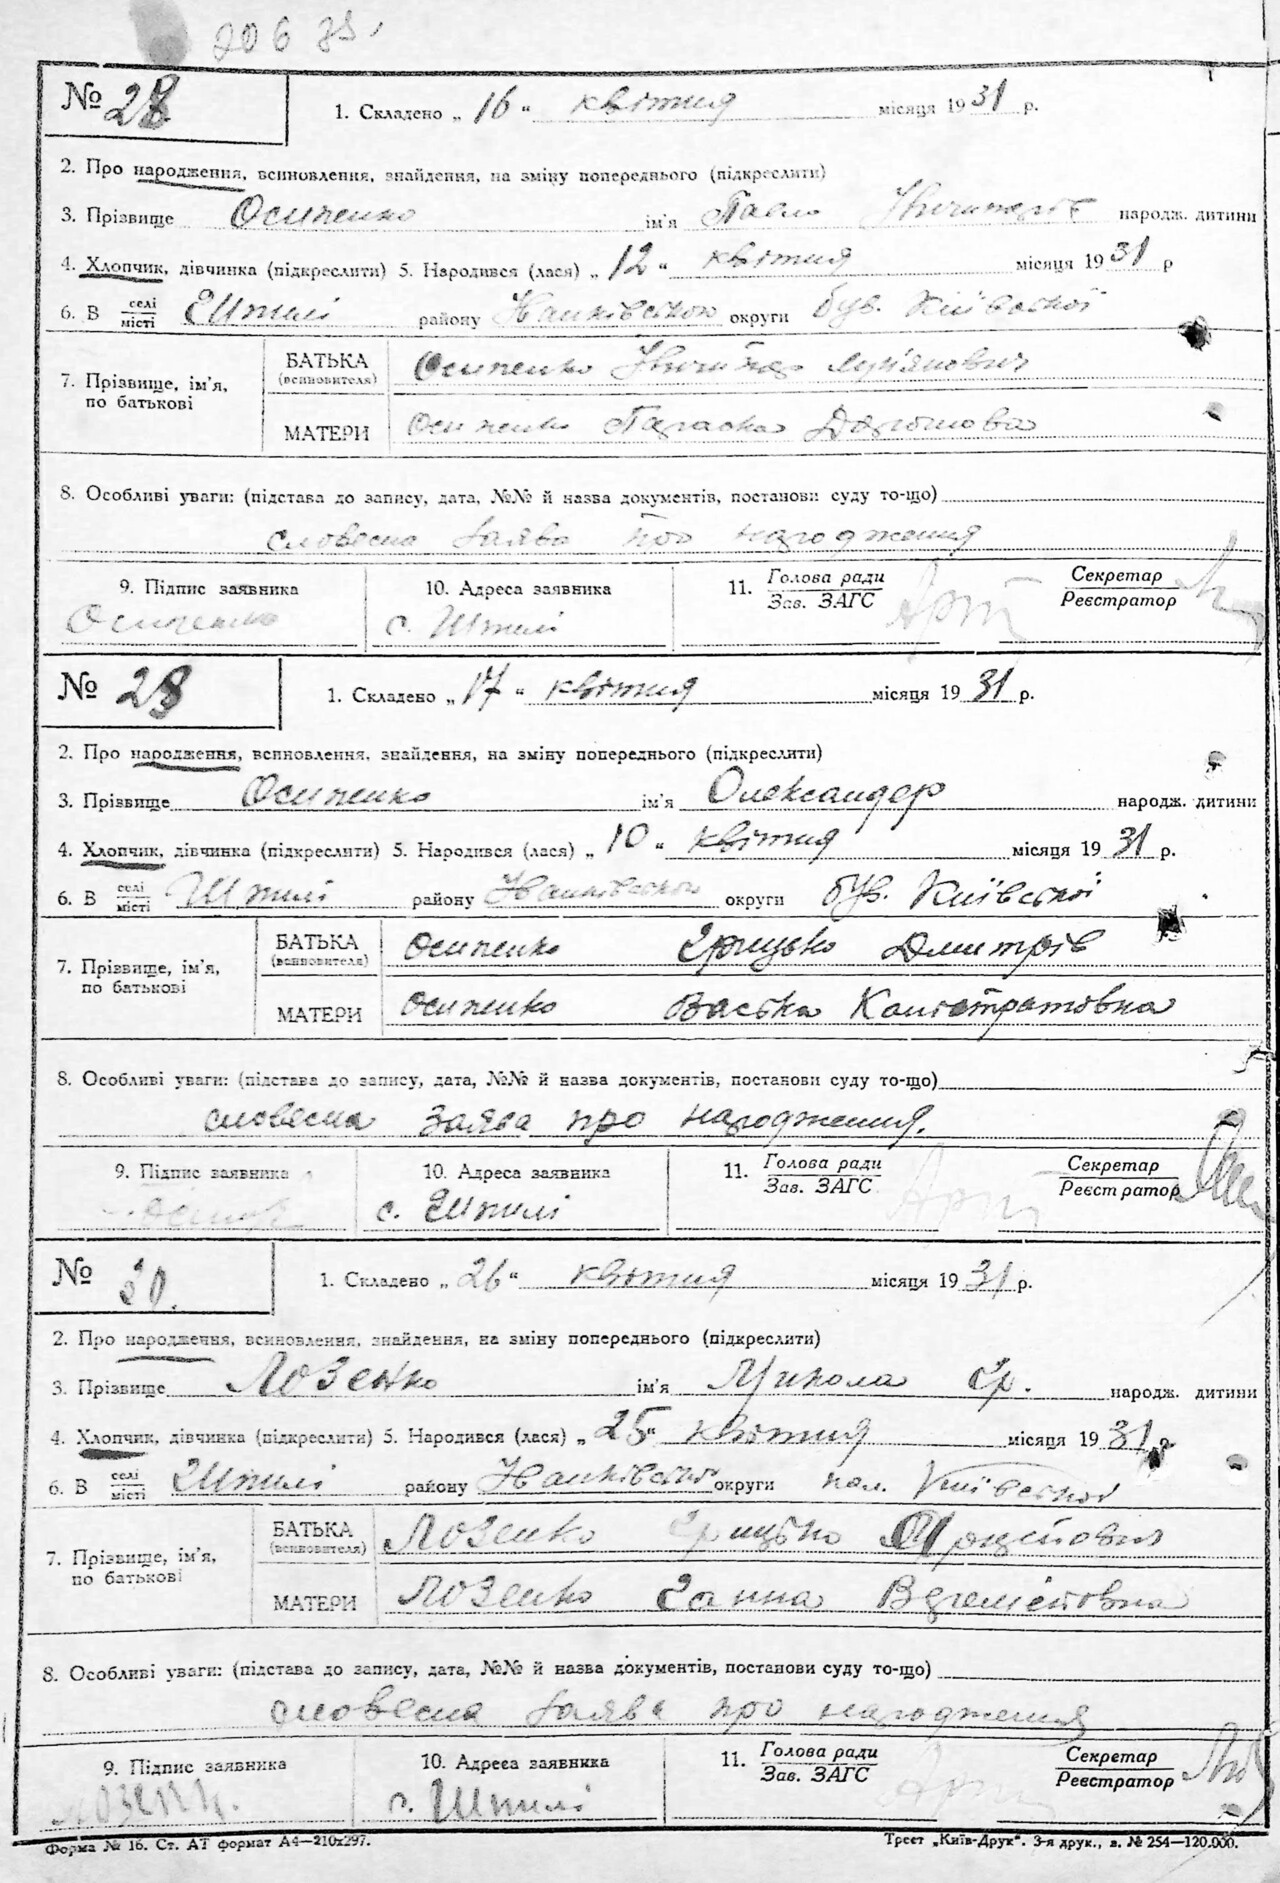 206 зв.
№ 28
1. Складено „16“ квітня місяця 1931 р.
2. Про народження, всиновлення, знайдення, на зміну попереднього (підкреслити)
3. Прізвище Осипенко ім'я Павло народж. дитини
4. Хлопчик, дівчинка (підкреслити) 5. Народився (лася) „12“ квітня місяця 1931 р
6. В селі/місті Штилі району округи був. Київської
7. Прізвище, ім'я, по батькові БАТЬКА (всиновителя) Осипенко
МАТЕРИ Осипенко Параска
8. Особливі уваги: (підстава до запису, дата, №№ й назва документів, постанови суду то-що)
словесна заява про народження
9. Підпис заявника 10. Адреса заявника 11. Голова ради/Зав. ЗАГС Секретар/Реєстратор
Осипенко с. Штилі
№ 28
1. Складено „17“ квітня місяця 1931 р.
2. Про народження, всиновлення, знайдення, на зміну попереднього (підкреслити)
3. Прізвище Осипенко ім'я Олександер народж. дитини
4. Хлопчик, дівчинка (підкреслити) 5. Народився (лася) „10“ квітня місяця 1931 р.
6. В селі/місті Штилі району округи був. Київської
7. Прізвище, ім'я, по батькові БАТЬКА (всиновителя) Осипенко Грицько Дмитрів
МАТЕРИ Осипенко Васька
8. Особливі уваги: (підстава до запису, дата, №№ й назва документів, постанови суду то-що)
словесна заява про народження.
9. Підпис заявника 10. Адреса заявника 11. Голова ради/Зав. ЗАГС Секретар/Реєстратор
с. Штилі
№ 30.
1. Складено „26“ квітня місяця 1931 р.
2. Про народження, всиновлення, знайдення, на зміну попереднього (підкреслити)
3. Прізвище Лозенко ім'я Микола Гр. народж. дитини
4. Хлопчик, дівчинка (підкреслити) 5. Народився (лася) „25“ квітня місяця 1931 р
6. В селі/місті Штилі району округи Київської
7. Прізвище, ім'я, по батькові БАТЬКА (всиновителя) Лозенко Грицько
МАТЕРИ Лозенко Ганна
8. Особливі уваги: (підстава до запису, дата, №№ й назва документів, постанови суду то-що)
словесна заява про народження
9. Підпис заявника 10. Адреса заявника 11. Голова ради/Зав. ЗАГС Секретар/Реєстратор
с. Штилі
Форма № 16. Ст. АТ формат А4—210х297. Трест „Київ-Друк“. 3-я друк., з. № 254—120.000.